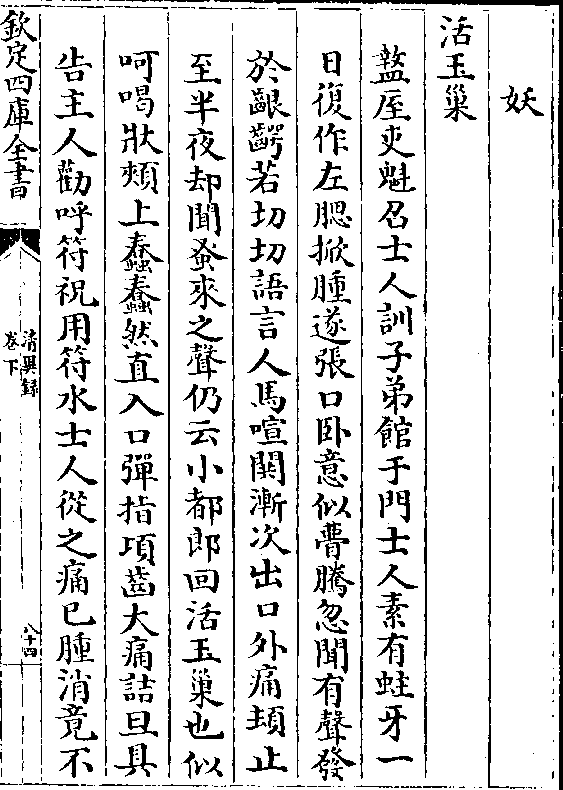 妖
活玉巢
盩厔吏魁召士人訓子弟館于門士人素有蛀牙一
日復作左腮掀腫遂張口卧意似瞢騰忽聞有聲發
於齦齶若切切語言人馬喧闐漸次出口外痛頓止
至半夜却聞蚤來之聲仍云小都郎回活玉巢也似
呵喝狀頰上蠢蠢然直入口彈指項齒大痛詰旦具
告主人勸呼符祝用符水士人從之痛已腫消竟不
欽定四庫全書
清異録
卷下
八十四